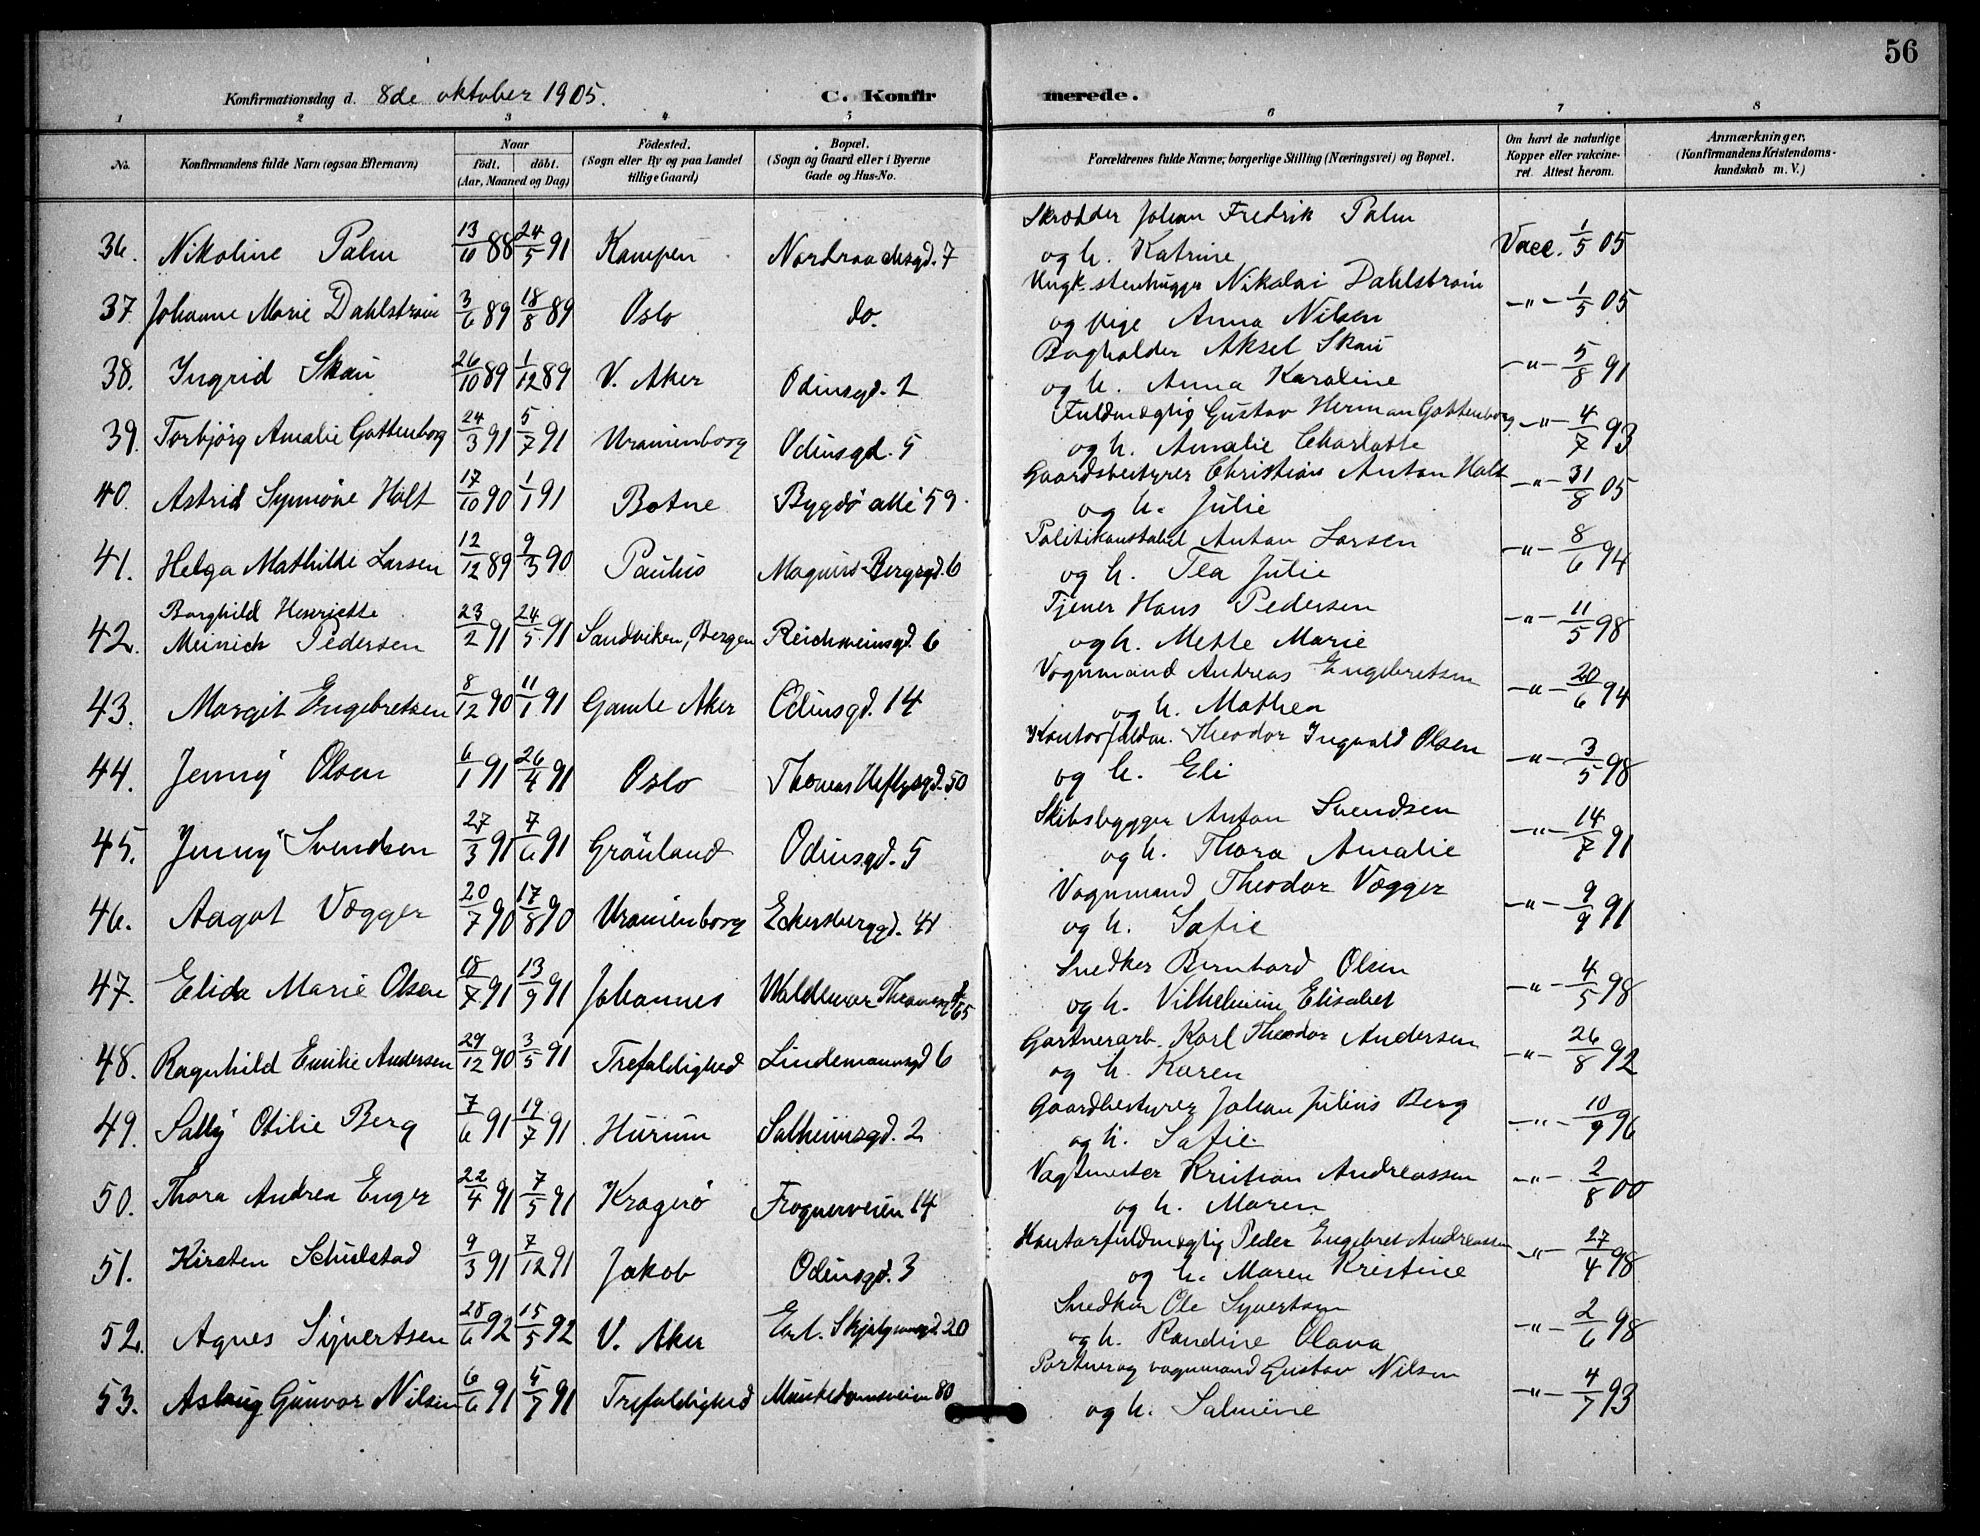 56
Konfirmationsdag d. 8de oktober 1905. C. Konfirmerede.
1 2 3 4 5 6 7 8
No. Konfirmandens fulde Navn (ogsaa Efternavn) Naar födt. döbt. (Aar, Maaned og Dag) Födested. (Sogn eller By og paa Landet tillige Gaard) Bopæl. (Sogn og Gaard eller i Byerne Gade og Hus-No. Forældrenes fulde Navne, borgerlige Stilling (Næringsvei) og Bopæl. Om havt de naturlige Kopper eller vakcineret. Attest herom. Anmærkninger. (Konfirmandens Kristendomskundskab m. V.)
36. Nikoline Palm 13/10 88 24/5 91 Kampen Nordraachsgd. 7 Skrædder Johan Fredrik Palm
og h. Katrine Vacc. 1/5 05
37. Johanne Marie Dahlström 3/6 89 18/8 89 Oslo do. Ungk. stenhugger Nikolai Dahlström
og pige Anna Nilsen -"- 1/5 05
38. Ingrid Skau 26/10 89 1/12 89 V. Aker Odinsgd. 2 Bogholder Aksel Skau
og h. Anna Karoline -"- 5/8 91
39. Torbjörg Amalie Gottenborg 24/3 91 5/7 91 Uranienborg Odinsgd. 5 Fuldmægtig Gustav Herman Gottenborg
og h. Amalie Charlotte -"- 4/7 93
40. Astrid Synnöve Holt 17/10 90 1/1 91 Botne Bygdö allé 59. Gaardsbestyrer Christian Anton Holt
og h. Julie -"- 31/8 05
41. Helga Mathilde Larsen 12/12 89 9/3 90 Paulus Magnus Bergsgd. 6 Politikonstabel Anton Larsen
og h. Tea Julie -"- 8/6 94
42. Borghild Henriette
Meinich Pedersen 23/2 91 24/5 91 Sandviken, Bergen Reichweinsgd. 6 Tjener Hans Pedersen
og h. Mette Marie -"- 11/5 98
43. Margit Engebretsen 8/12 90 11/1 91 Gamle Aker Odinsgd. 14 Vognmand Andreas Engebretsen
og h. Mathea -"- 20/6 94
44. Jenny Olsen 6/1 91 26/4 91 Oslo Thomas Heftyesgd. 50 Kontorfuldm. Theodor Ingvald Olsen
og h. Eli -"- 3/5 98
45. Jenny Svendsen 27/3 91 7/6 91 Grönland Odinsgd. 5 Skibsbygger Anton Svendsen
og h. Thora Amalie -"- 14/7 91
46. Aagot Vægger 20/7 90 17/8 90 Uranienborg Eckersberggd. 41 Vognmand Theodor Vægger
og h. Sofie -"- 9/9 91
47. Elida Marie Olsen 18/7 91 13/9 91 Johannes Waldemar Thranesgd. 65 Snedker Bernhard Olsen
og h. Vilhelmine Elisabet -"- 4/5 98
48. Ragnhild Emilie Andersen 29/12 90 3/5 91 Trefoldighed Lindemannsgd 6 Gartnerarb. Karl Theodor Andersen
og h. Karen -"- 26/8 92
49. Sally Otilie Berg 7/6 91 19/7 91 Hurum Solheimsgd. 2 Gaardbestyrer Johan Julius Berg
og h. Sofie. -"- 10/9 96
50. Thora Andrea Enger 22/4 91 7/5 91 Kragerö Frognerveien 14 Vagtmester Kristian Andreassen
og h. Maren -"- 2/8 00
51. Kirsten Schulstad 9/3 91 7/12 91 Jakob Odinsgd. 3 Kontorfuldmægtig Peder Engebret Andreassen
og h. Maren Kristine -"- 27/4 98
52. Agnes Sijvertsen 28/6 92 15/5 92 V. Aker Erl. Skjalgssgd. 20 Snedker Ole Syvertsen
og h. Randine Olava -"- 2/6 98
53. Aslaug Gunvor Nilsen 6/6 91 5/7 91 Trefoldighed Munkedamsveien 80 Portner og vognmand Gustav Nilsen
og h. Salmine -"- 4/7 93